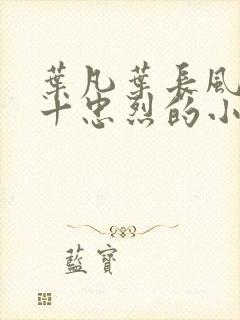 葉凡葉長風
十忠烈的小
藍寶